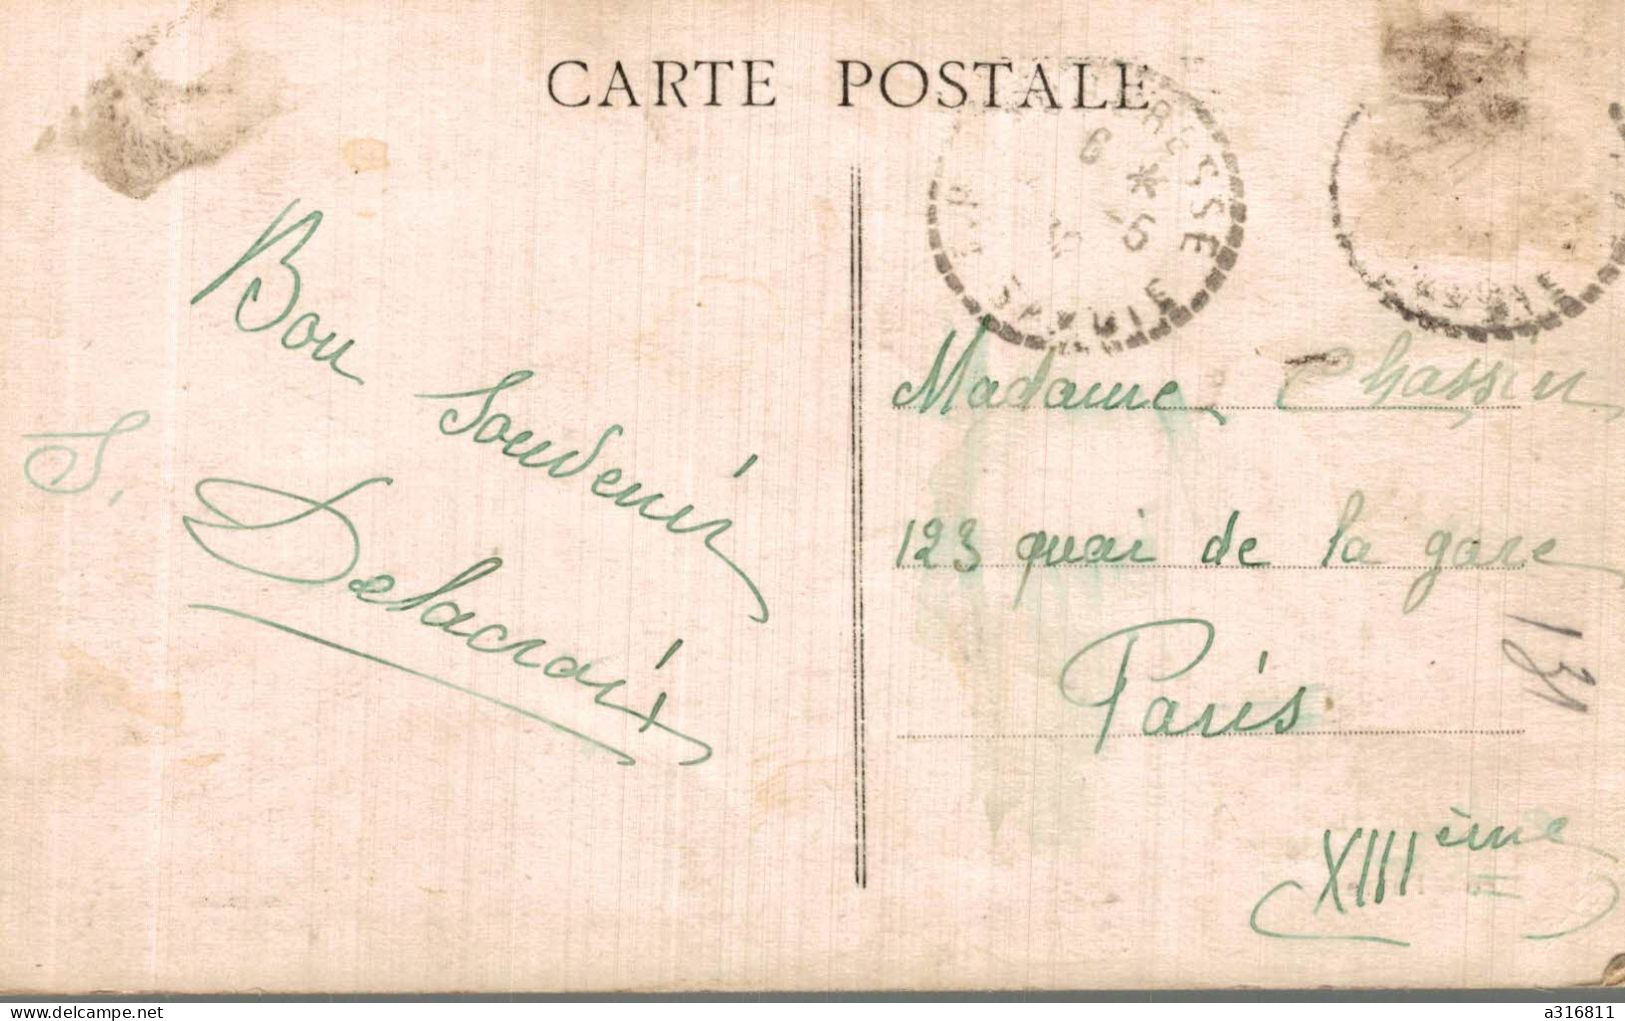 CARTE POSTALE
6 *
5
SAVOIE
SAVOIE
Bon
Souvenir
S. Delacroix
Madame Chassin
123 quai de la gare
Paris
XIIIème
131
delcampe.net
a316811